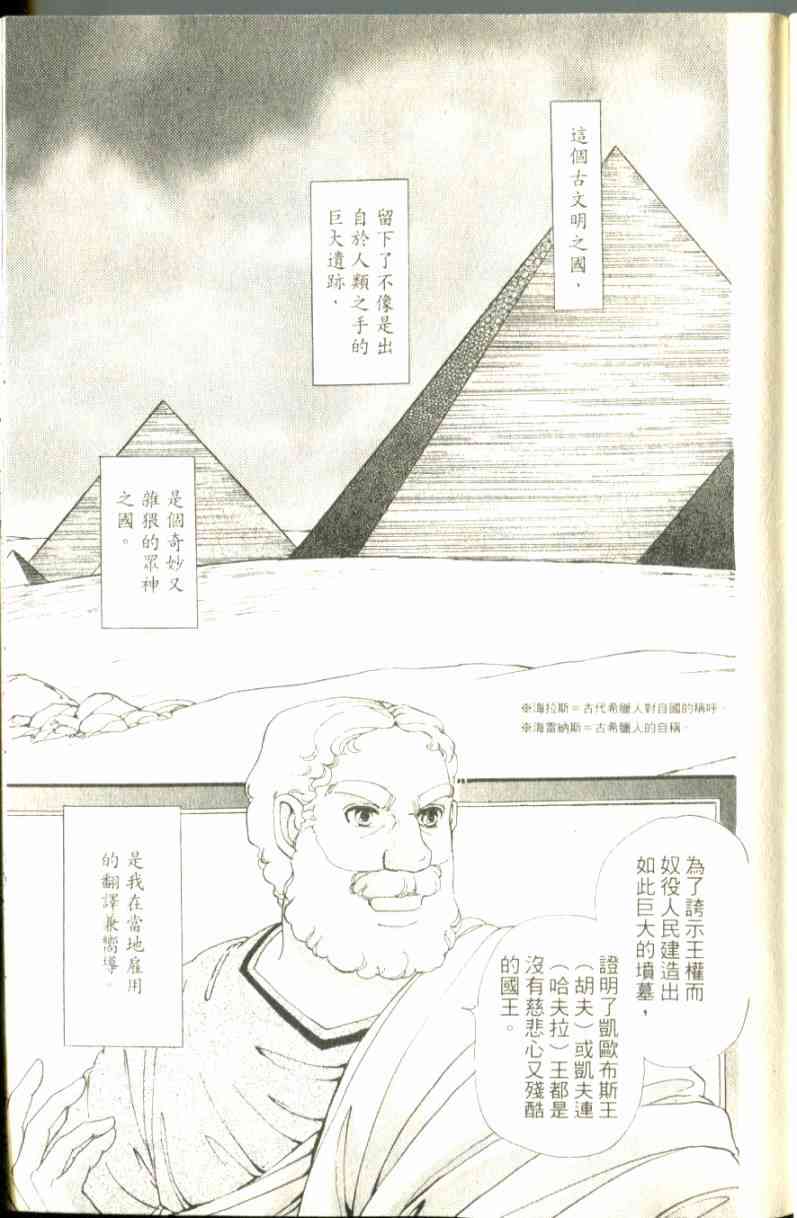 這個古文明之國，
留下了不像是出
自於人類之手的
巨大遺跡，
是個奇妙又
雜猥的眾神
之國。
※海拉斯＝古代希臘人對自國的稱呼。
※海雷納斯＝古希臘人的自稱。
為了誇示王權而
奴役人民建造出
如此巨大的墳墓，
證明了凱歐布斯王
（胡夫）或凱夫連
（哈夫拉）王都是
沒有慈悲心又殘酷
的國王。
是我在當地雇用
的翻譯兼嚮導。